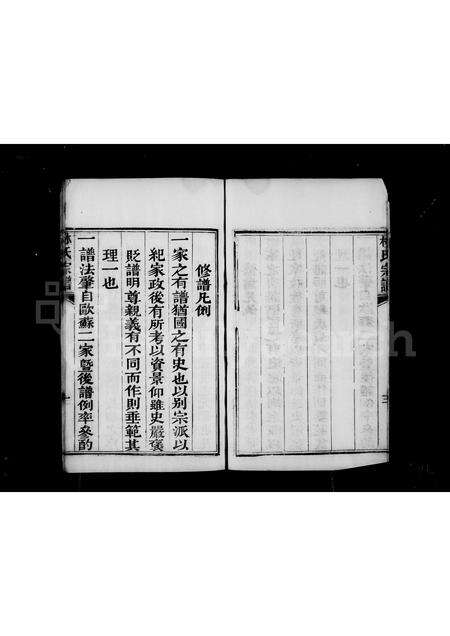 修譜凡例
一家之有譜猶國之有史也以别宗派以
紀家政後有所考以資景仰雖史嚴褒
貶譜明尊親義有不同而作則垂範其
理一也
一譜法肇自歐蘇二家曁後譜例率參酌
林氏宗譜